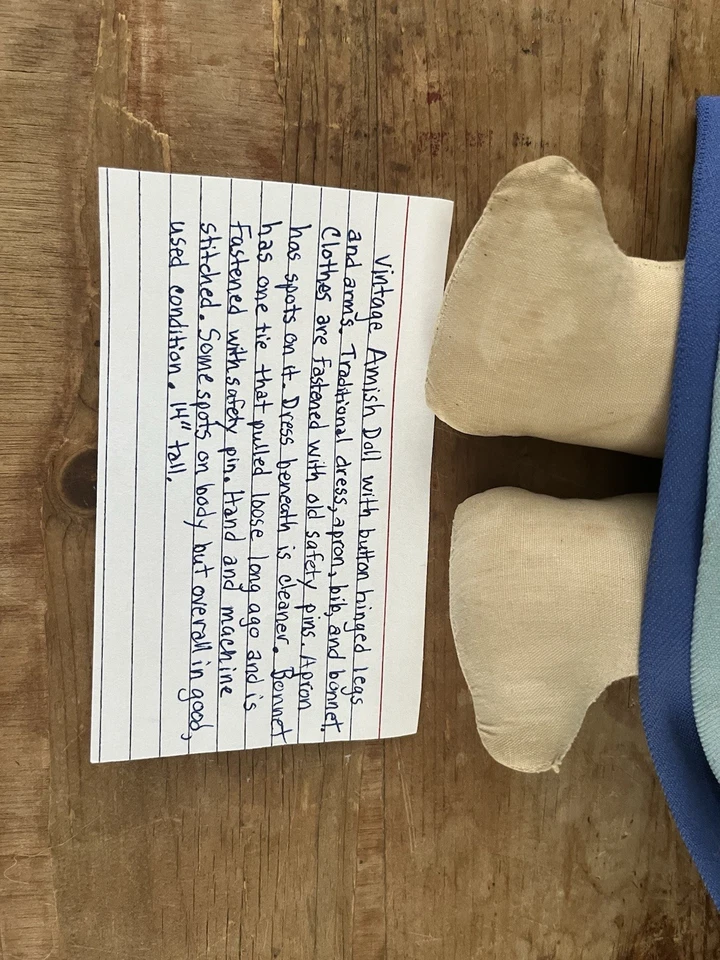 Vintage Amish Doll with button hinged legs
and arms. Traditional dress, apron, bib, and bonnet.
Clothes are fastened with old safety pins. Apron
has spots on it. Dress beneath is cleaner. Bonnet
has one tie that pulled loose long ago and is
fastened with safety pin. Hand and machine
stitched. Some spots on body but overall in good,
used condition. 14" tall.